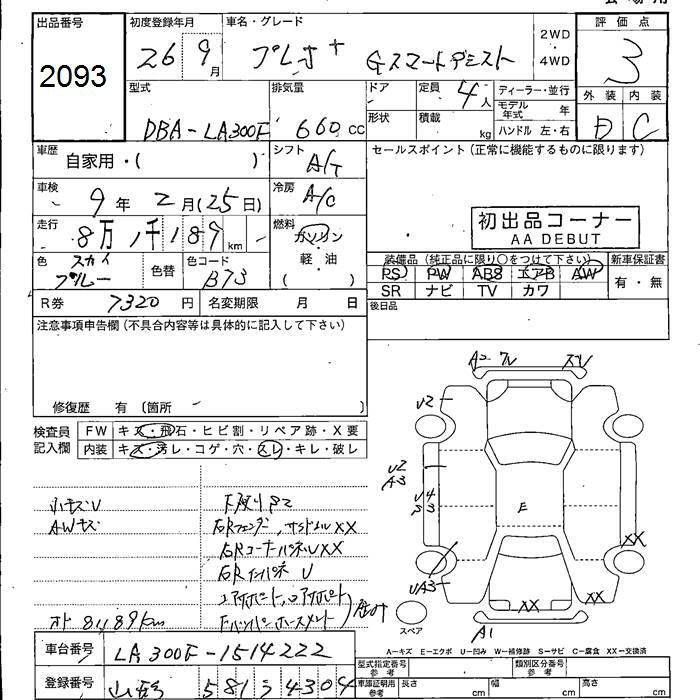 出品番号 初度登録年月 車名・グレード 評価点
2093 26 9月 プレオ+ Gスマートアシスト 2WD 4WD 3
型式 排気量 ドア 定員 4人 ディーラー・並行 外装 内装
DBA-LA300F 660cc モデル年式 年 D C
形状 積載 kg ハンドル 左・右
車歴 自家用・( ) シフト A/T セールスポイント(正常に機能するものに限ります)
車検 9年 2月(25日) 冷房 A/C
初出品コーナー
AA DEBUT
走行 8万1千189km 燃料 ガソリン 軽油 ( )
色 スカイブルー 色替 色コード B73
装備品(純正品に限り○をつけて下さい) 新車保証書
PS PW ABS エアB AW 有・無
SR ナビ TV カワ
R券 7320円 名変期限 月 日 後日品
注意事項申告欄(不具合内容等は具体的に記入して下さい)
修復歴 有 〔箇所 〕
検査員記入欄 FW キズ・飛石・ヒビ割・リペア跡・X要
内装 キズ・汚レ・コゲ・穴・スレ・キレ・破レ
小キズU
AWキズ
右Rフェンダー,サイドシルXX
右RコーナーパネルUXX
右Rインパネ U
オド 81189km
A2
U2
U2
A3
U4
E
XX
UA3
XX
XX
A1
スペア
A-キズ E-エクボ U-凹み W-補修跡 S-サビ C-腐食 XX-交換済
車台番号 LA300F-1514222
登録番号 581 4304
型式指定番号 参考 類別区分番号 参考
車庫証明用 参考 長さ cm 幅 cm 高さ cm